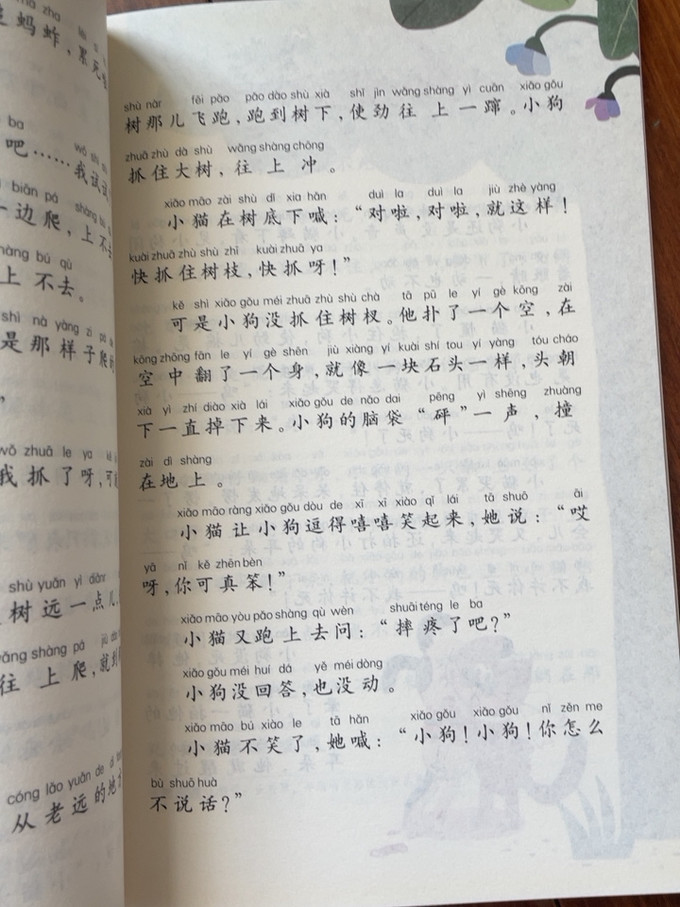 蚂蚱，累
bɑ
吧……我试试
biān pá
一边爬，上不
shàng bú qù
上不去。
shì nà yàng zi
是那样子爬
wǒ zhuā le ya
我抓了呀，可
shù yuǎn yì diǎnr
树远一点儿
wǎng shàng pá
往上爬，就
cóng lǎo yuǎn de
从老远的地
shù nàr fēi pǎo pǎo dào shù xià shǐ jìn wǎng shàng yì cuān xiǎo gǒu
树那儿飞跑，跑到树下，使劲往上一蹿。小狗
zhuā zhù dà shù wǎng shàng chōng
抓住大树，往上冲。
xiǎo māo zài shù dǐ xia hǎn duì la duì la jiù zhè yàng
小猫在树底下喊：“对啦，对啦，就这样！
kuài zhuā zhù shù zhī kuài zhuā ya
快抓住树枝，快抓呀！”
kě shì xiǎo gǒu méi zhuā zhù shù chà tā pū le yí gè kōng zài
可是小狗没抓住树杈。他扑了一个空，在
kōng zhōng fān le yí gè shēn jiù xiàng yí kuài shí tou yí yàng tóu cháo
空中翻了一个身，就像一块石头一样，头朝
xià yì zhí diào xià lái xiǎo gǒu de nǎo dai pēng yì shēng zhuàng
下一直掉下来。小狗的脑袋“砰”一声，撞
zài dì shàng
在地上。
xiǎo māo ràng xiǎo gǒu dòu de xī xī xiào qǐ lái tā shuō āi
小猫让小狗逗得嘻嘻笑起来，她说：“哎
yā nǐ kě zhēn bèn
呀，你可真笨！”
xiǎo māo yòu pǎo shàng qù wèn shuāi téng le ba
小猫又跑上去问：“摔疼了吧？”
xiǎo gǒu méi huí dá yě méi dòng
小狗没回答，也没动。
xiǎo māo bú xiào le tā hǎn xiǎo gǒu xiǎo gǒu nǐ zěn me
小猫不笑了，她喊：“小狗！小狗！你怎么
bù shuō huà
不说话？”